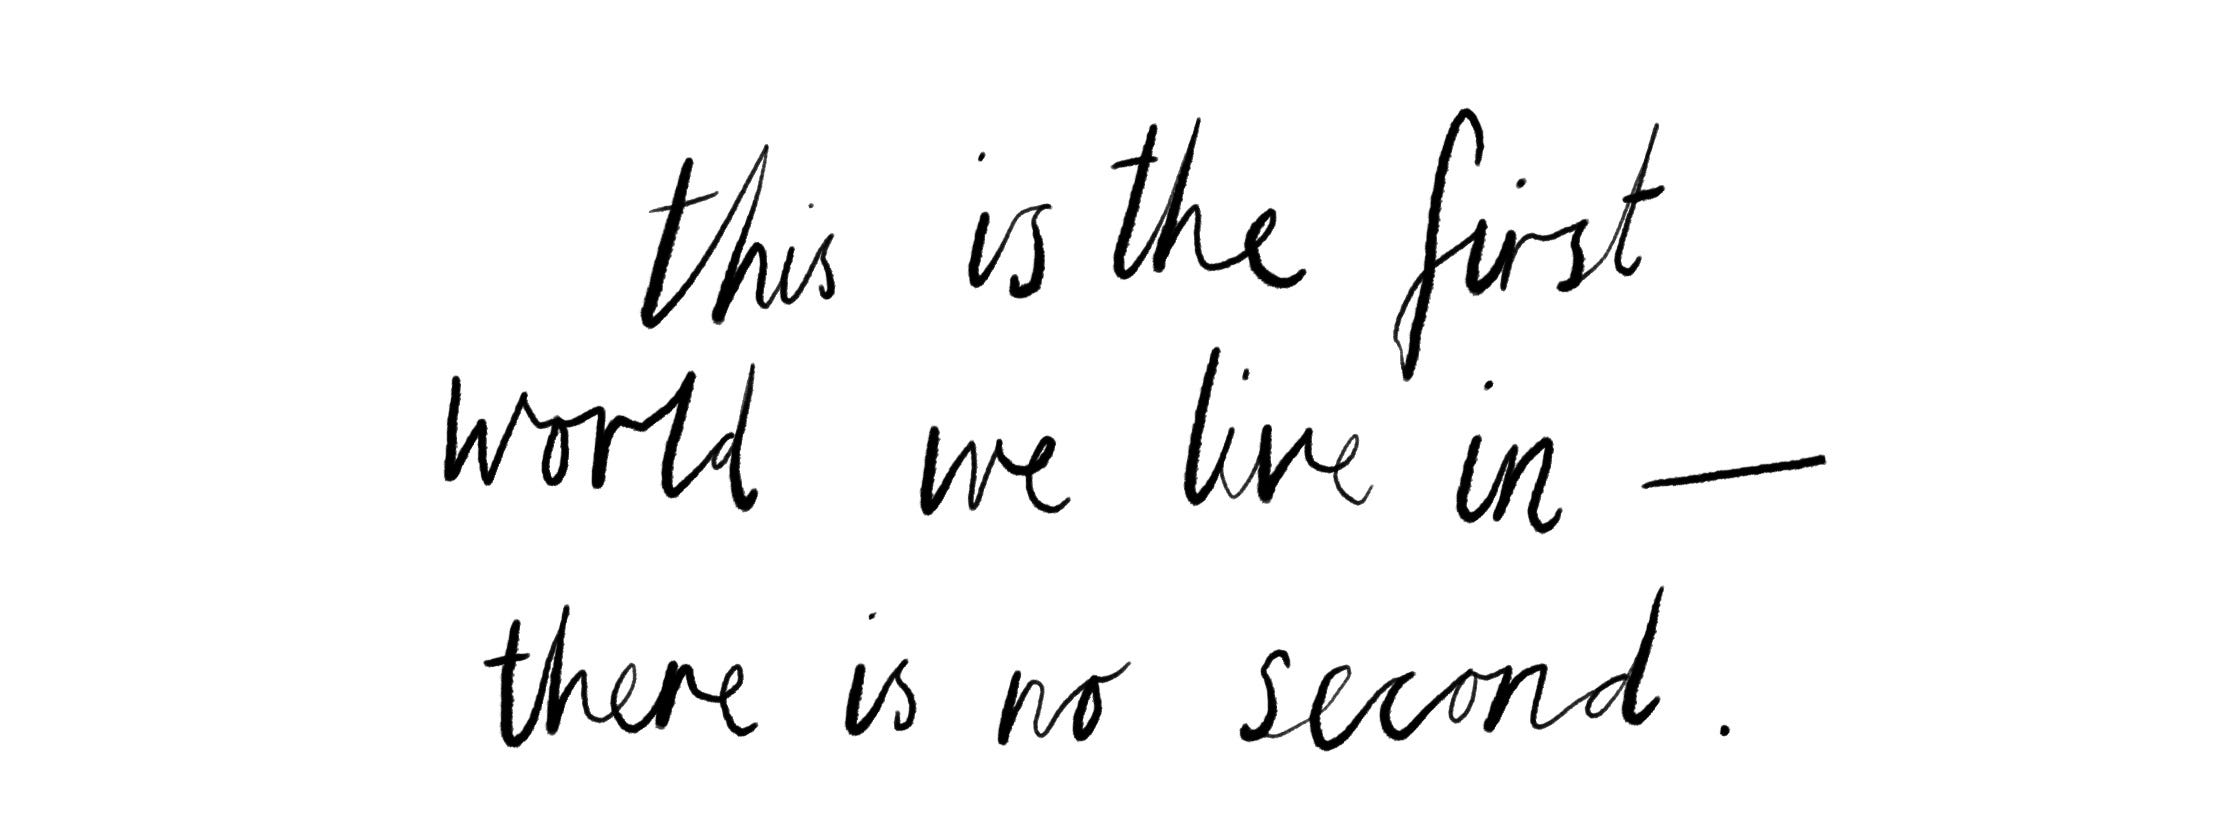 this is the first
world we live in —
there is no second.